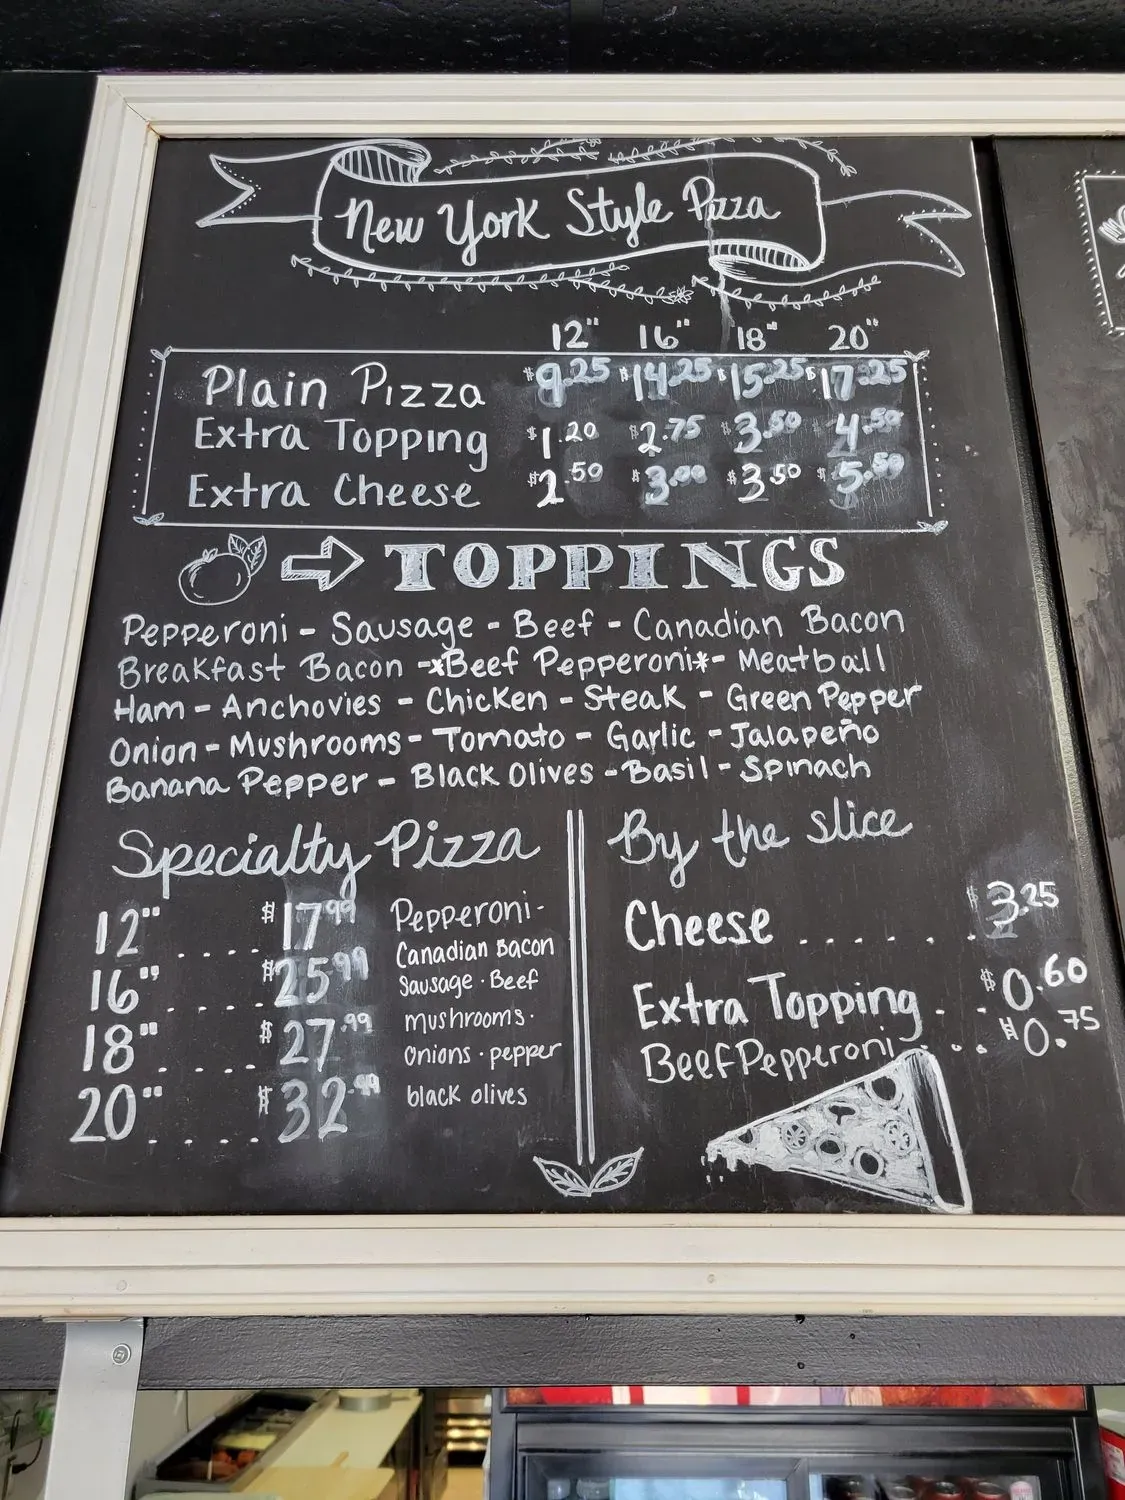 New York Style Pizza
12" 16" 18" 20"
Plain Pizza $9.25 $14.25 $15.25 $17.25
Extra Topping $1.20 $2.75 $3.50 $4.50
Extra Cheese $2.50 $3.00 $3.50 $5.50
TOPPINGS
Pepperoni - Sausage - Beef - Canadian Bacon
Breakfast Bacon -*Beef Pepperoni*- Meatball
Ham - Anchovies - Chicken - Steak - Green Pepper
Onion - Mushrooms - Tomato - Garlic - Jalapeño
Banana Pepper - Black Olives - Basil - Spinach
Specialty Pizza
12" .... $17.99 Pepperoni-
Canadian Bacon
16" .... $25.99 Sausage · Beef
18" .... $27.99 mushrooms·
onions · pepper
20" .... $32.99 black olives
By the slice
Cheese ..... $3.25
Extra Topping .. $0.60
Beef Pepperoni ... $0.75